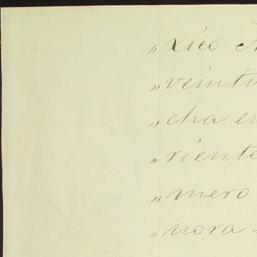 „xico
„veintu
„cha en
„riente
„mero
„nora